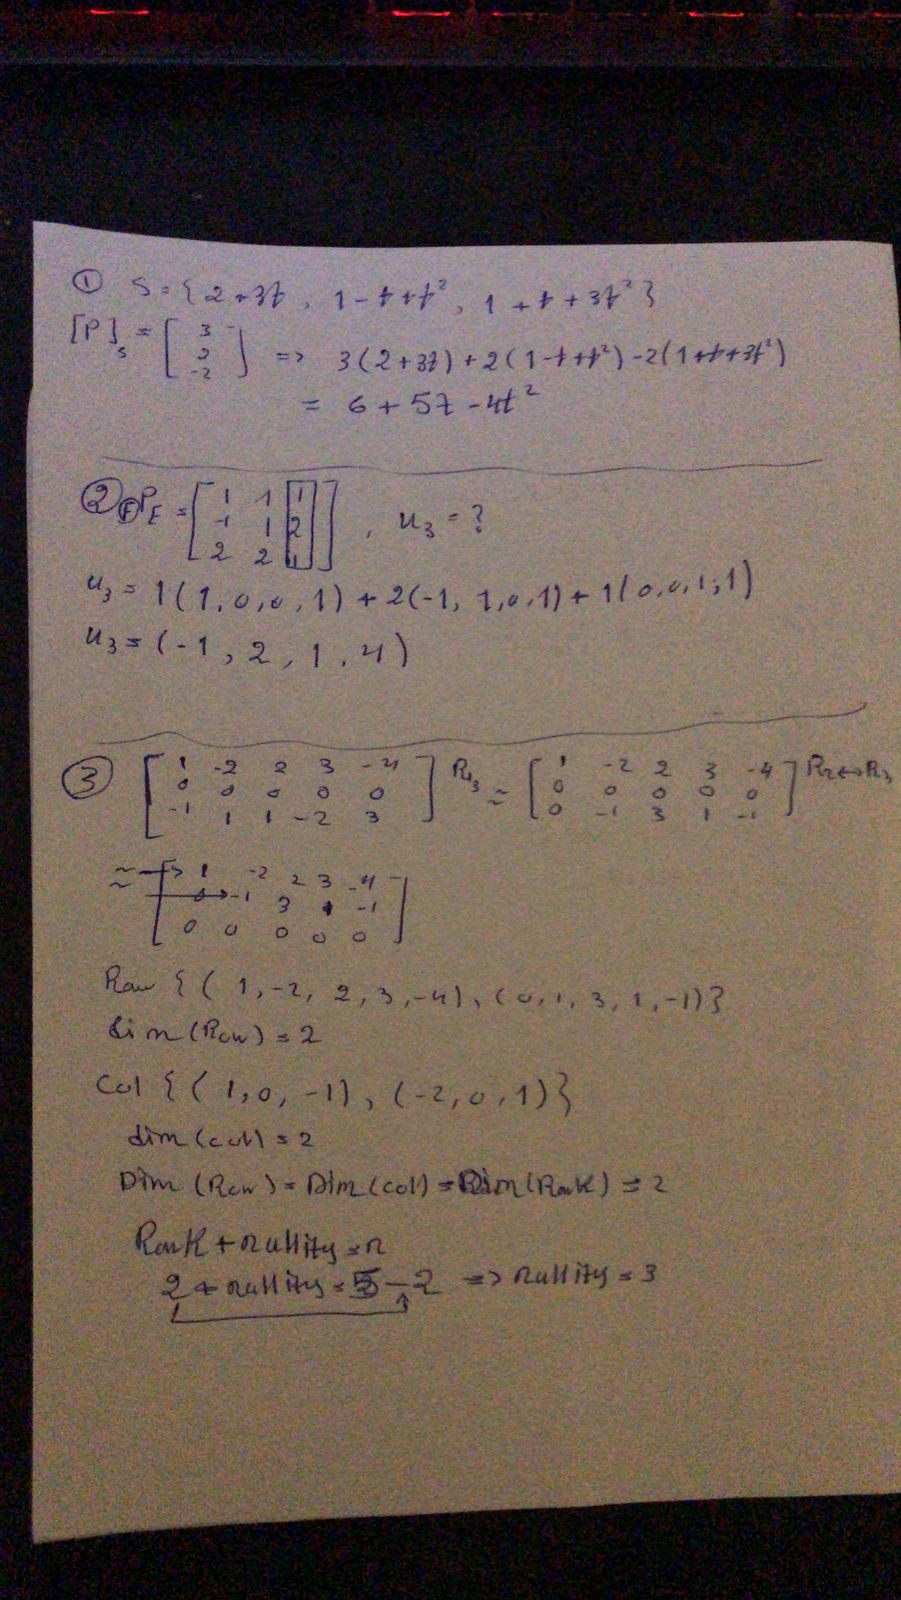 ① S = { 2+3t , 1-t+t² , 1+t+3t² }
[P]s = [ 3 2 -2 ] => 3(2+3t)+2(1-t+t²)-2(1+t+3t²)
= 6+5t-4t²
②
[ 1 1 1
-1 1 2
2 2 1 ] , u₃=?
u₃=1(1,0,0,1)+2(-1,1,0,1)+1(0,0,1,1)
u₃=(-1,2,1,4)
③ [ 1 -2 2 3 -4 ] R₁₃ ~ [ 1 -2 2 3 -4 ] R₂↔R₃
0 0 0 0 0 0 0 0 0 0
-1 1 1 -2 3 0 -1 3 1 -1
~ [ 1 -2 2 3 -4
0 -1 3 1 -1
0 0 0 0 0 ]
Row {(1,-2,2,3,-4),(0,1,3,1,-1)}
dim(Row)=2
Col {(1,0,-1),(-2,0,1)}
dim(col)=2
Dim(Row)=Dim(col)=Dim(Rank)=2
Rank+nullity=n
2+nullity=5-2 => nullity=3